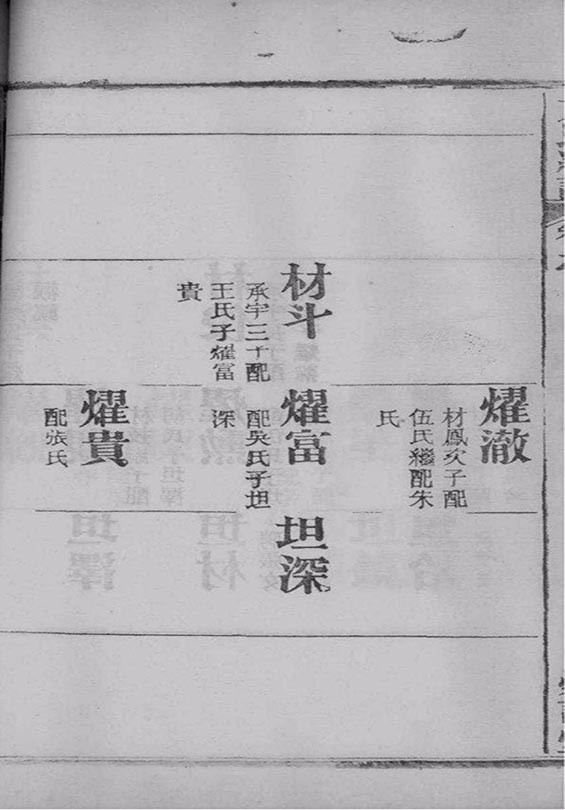 材斗
承宇三子配
王氏子燿富
貴
燿澈
材鳳次子配
伍氏繼配朱
氏
燿富
配吳氏子坦
深
燿貴
配張氏
坦深